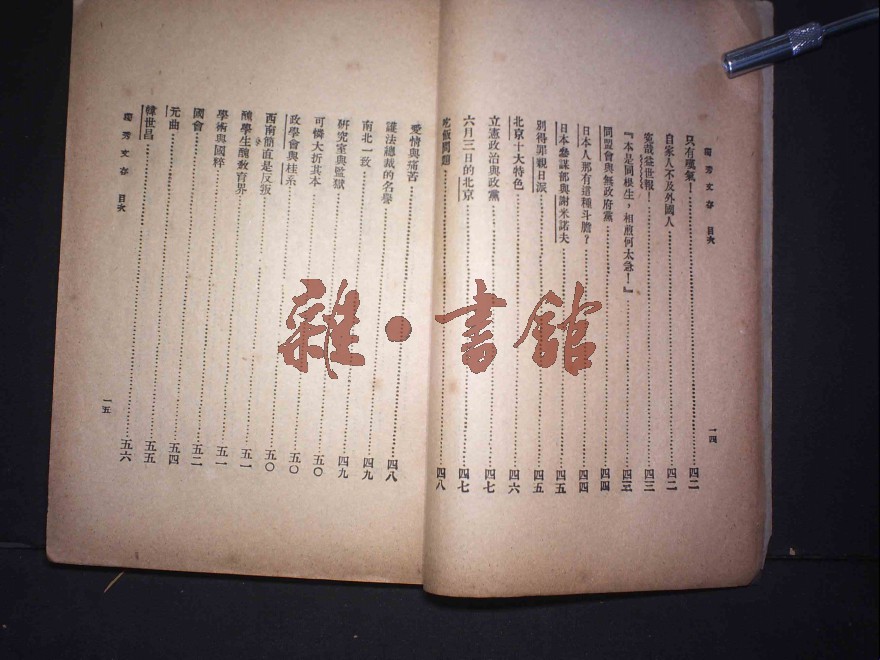 獨秀文存 目次
一四
只有嘆氣！……四二
自家人不及外國人……四二
寃哉益世報！……四三
『本是同根生，相煎何太急！』……四三
同盟會與無政府黨……四四
日本人那有這種斗膽？……四四
日本參謀部與謝米諾夫……四五
別得罪親日派……四五
北京十大特色……四六
立憲政治與政黨……四七
六月三日的北京……四七
吃飯問題……四八
愛情與痛苦……四八
護法總裁的名譽……四九
南北一致……四九
研究室與監獄……四九
可憐大折其本……五〇
政學會與桂系……五〇
西南簡直是反叛……五〇
醜學生醜敎育界……五一
學術與國粹……五一
國會……五二
元曲……五四
韓世昌……五五
獨秀文存 目次
五六
一五
雜·書館